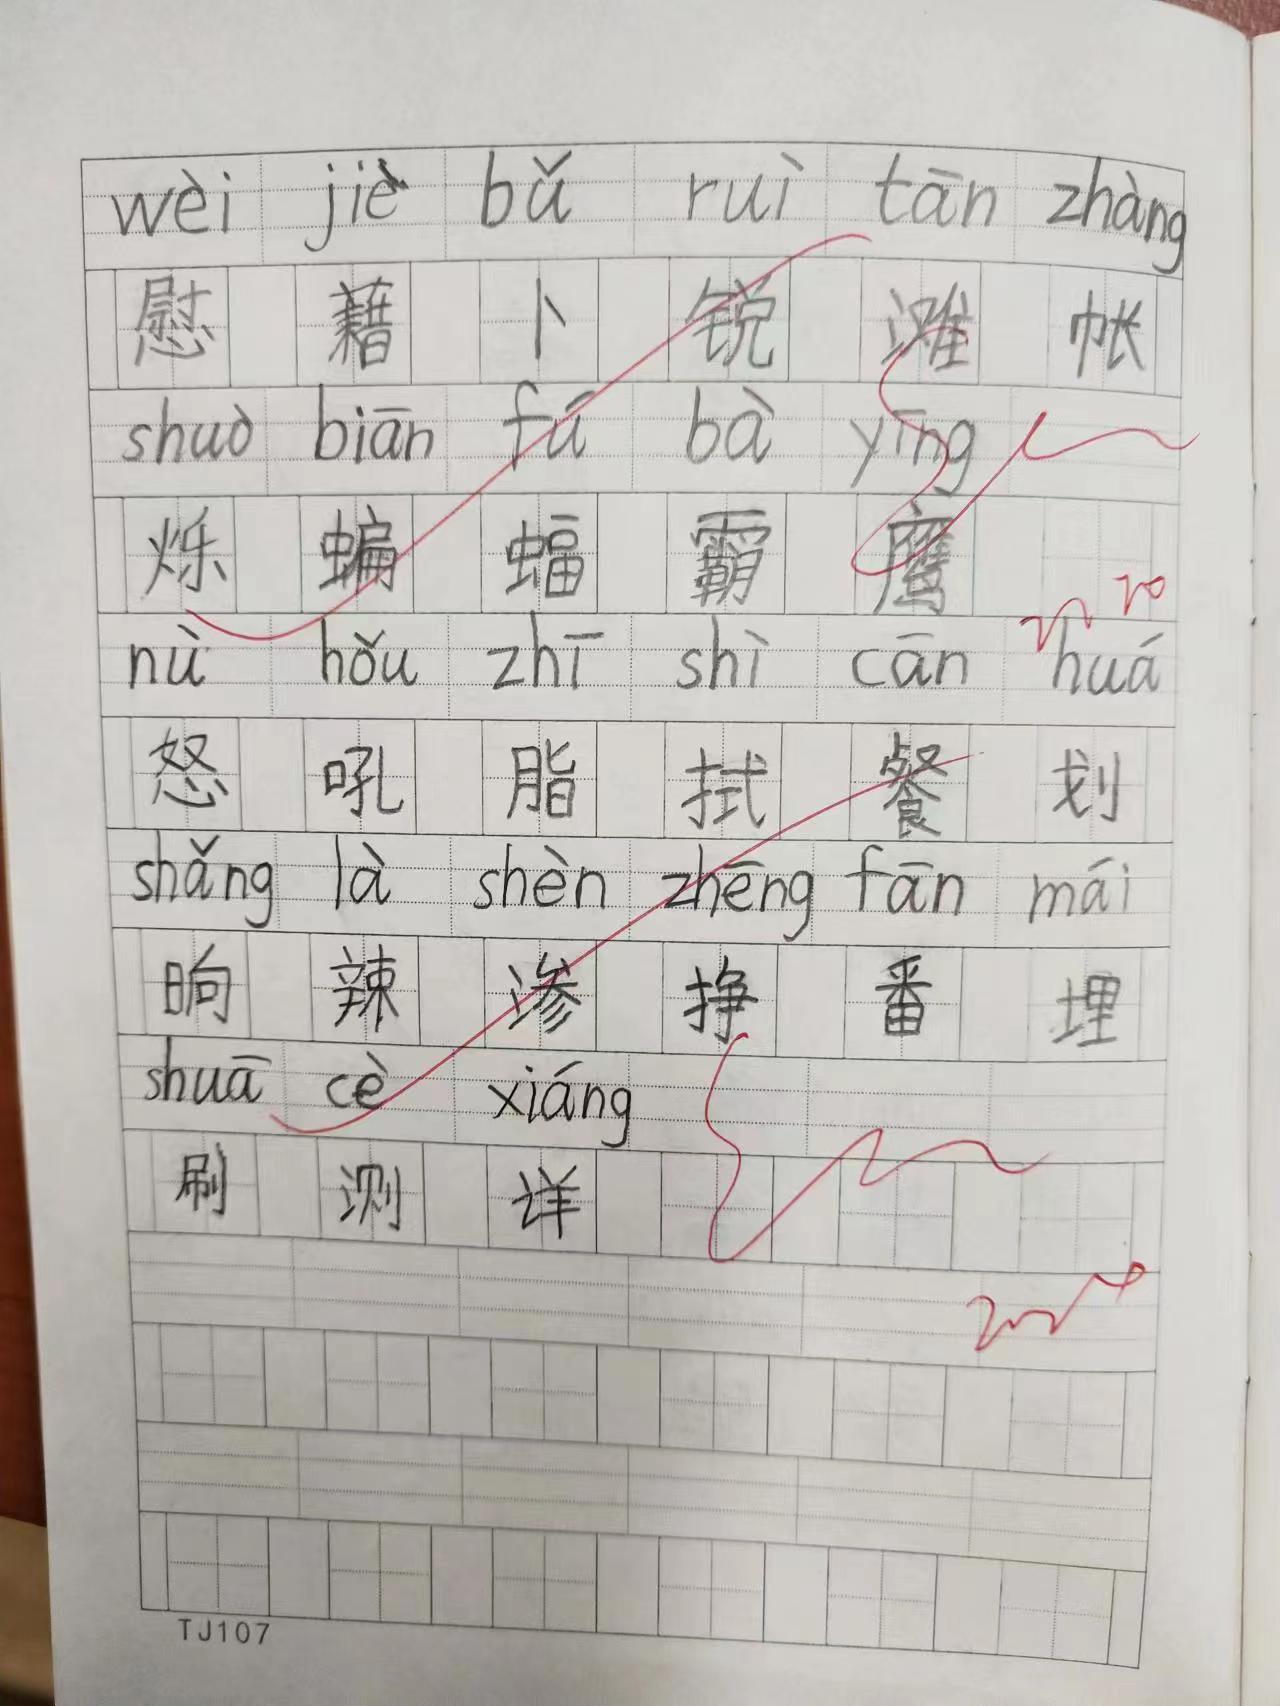 wèi jiè bǔ ruì tān zhàng
慰 藉 卜 锐 滩 帐
shuò biān fú bà yīng
烁 蝙 蝠 霸 鹰
nù hǒu zhī shì cān huá
怒 吼 脂 拭 餐 划
shǎng là shèn zhēng fān mái
晌 辣 渗 挣 番 埋
shuā cè xiáng
刷 测 详
TJ107